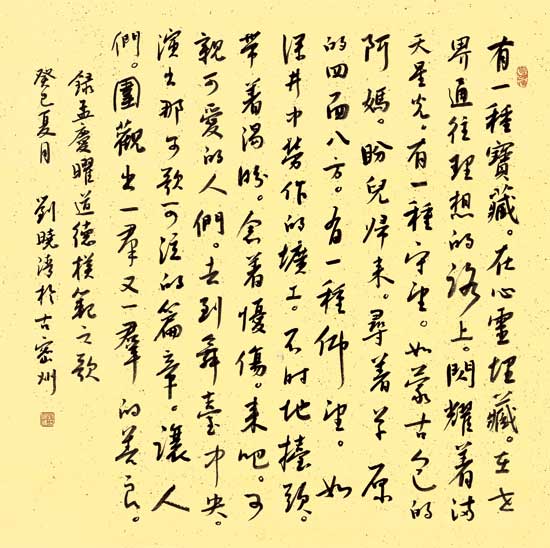 有一種寶藏。在心靈埋藏。在世
界通往理想的路上。閃耀着滿
天星光。有一種守望。如蒙古包的
阿媽。盼兒归来。尋着草原
的四面八方。有一種仰望。如
深井中勞作的壙工。不时地擡頭。
带着渴盼。含着憂傷。来吧。可
親可愛的人們。去到舞臺中央。
演出那可歌可泣的篇章。讓人
們。圍觀出一羣又一羣的善良。
録孟慶曜道德模範之歌
癸巳夏月 劉曉於古密州